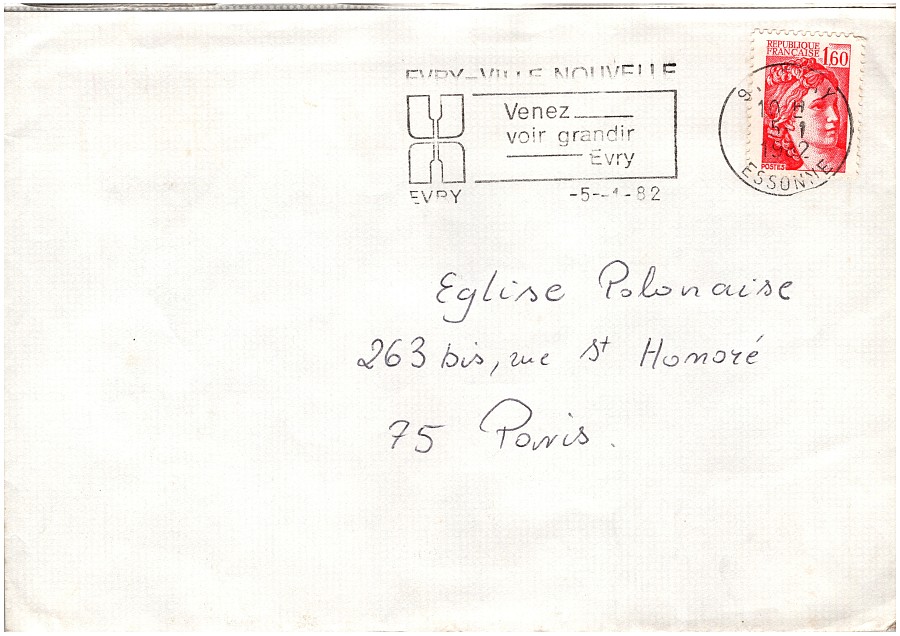 EVRY-VILLE NOUVELLE
Venez
voir grandir
Evry
EVRY
-5--1-82
REPUBLIQUE
FRANCAISE
1,60
POSTES
19 H
5 1
1982
ESSONNE
Eglise Polonaise
263 bis, rue St Honoré
75 Paris.